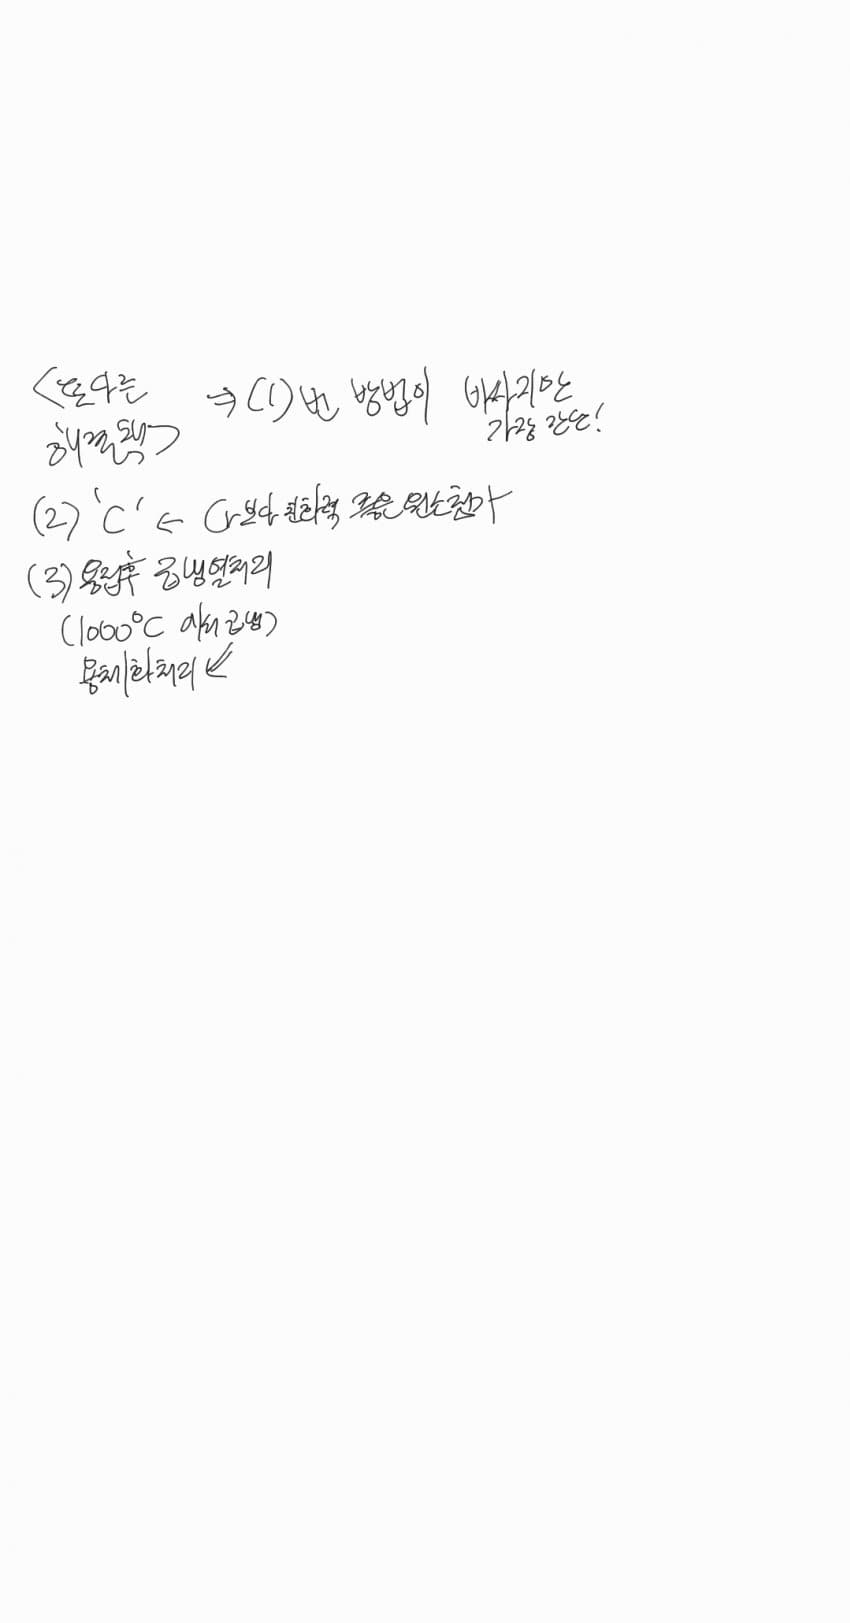 <또다른 해결책> → (1)번 방법이 비싸지만
가장 간단!
(2) 'C' ← Cr보다 친화력 좋은 원소첨가
(3) 용접後 급냉열처리
(1000℃ 급냉)
용체화처리 ↙